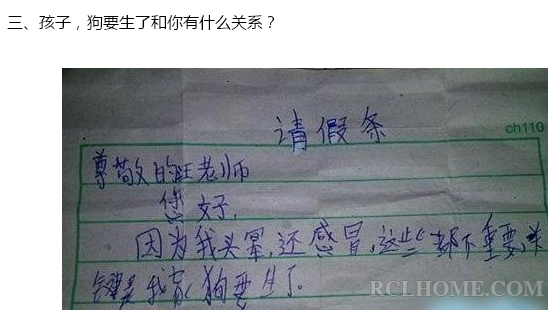 三、孩子，狗要生了和你有什么关系？
请假条
ch110
尊敬的旺老师
您好,
因为我头晕,还感冒,这些都不重要,关
键是我家狗要生了。
RCLHOME.COM